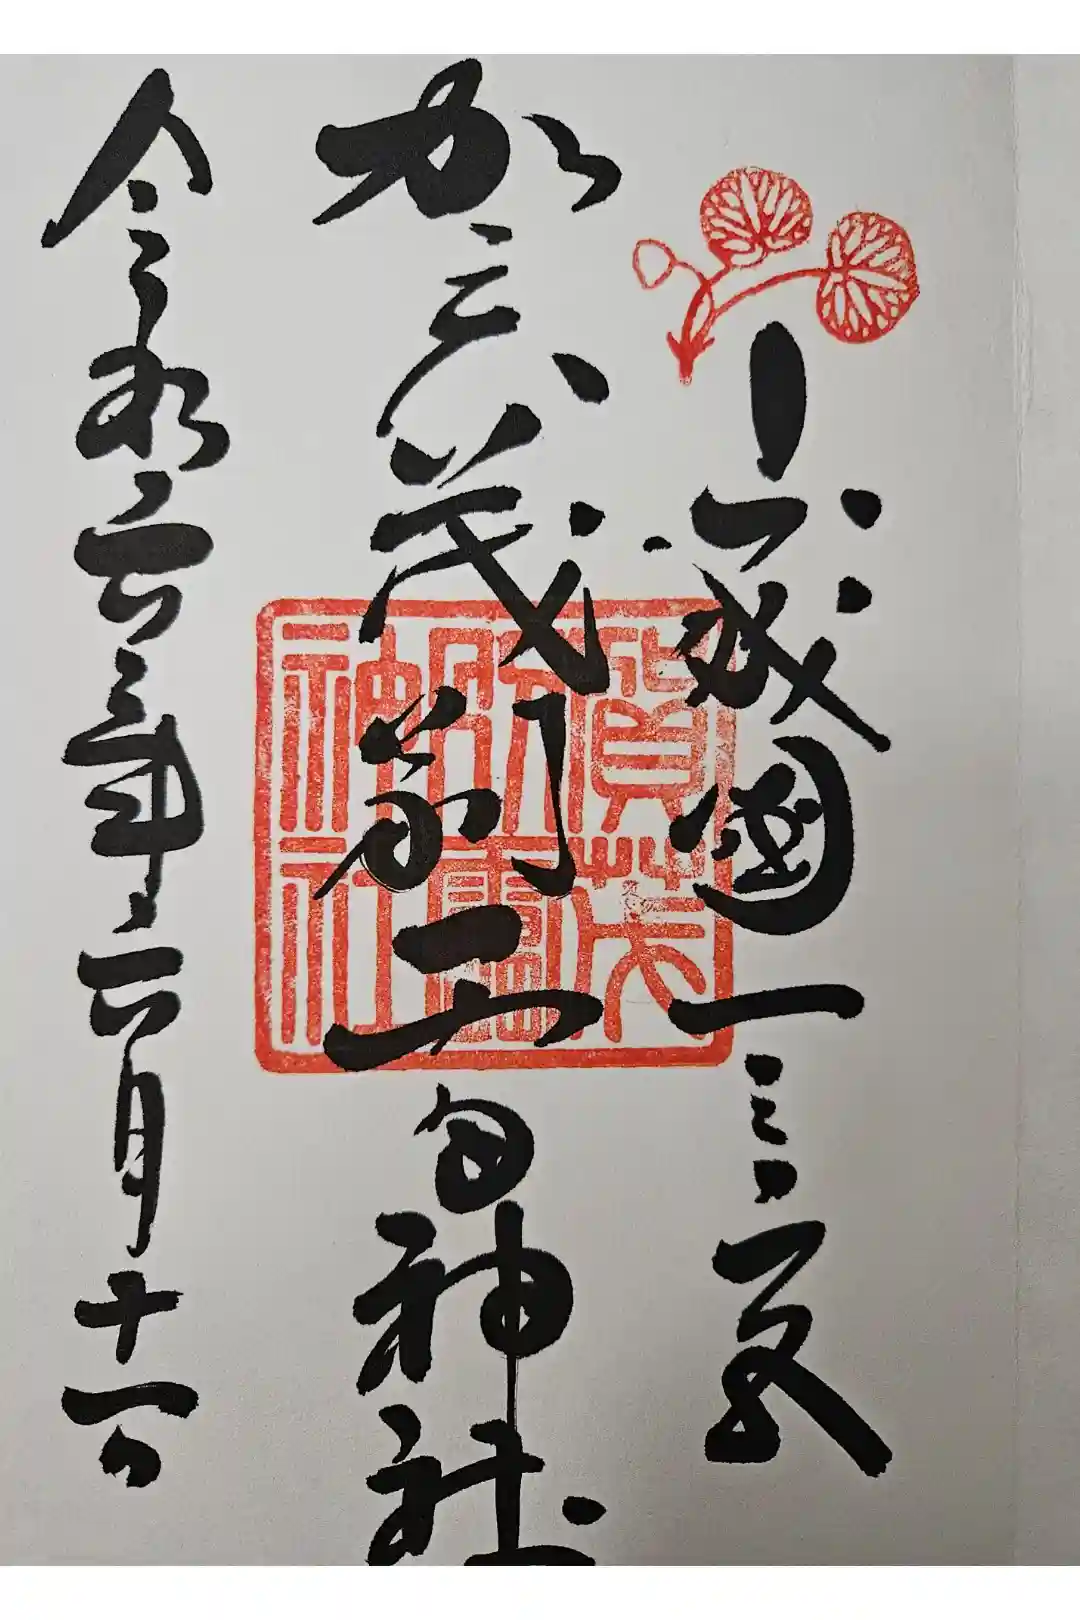 山城國一
賀茂別雷神社
令和六年六月十一日
賀茂
別雷
神社